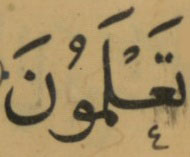 تَعْلَمُونَ
٤